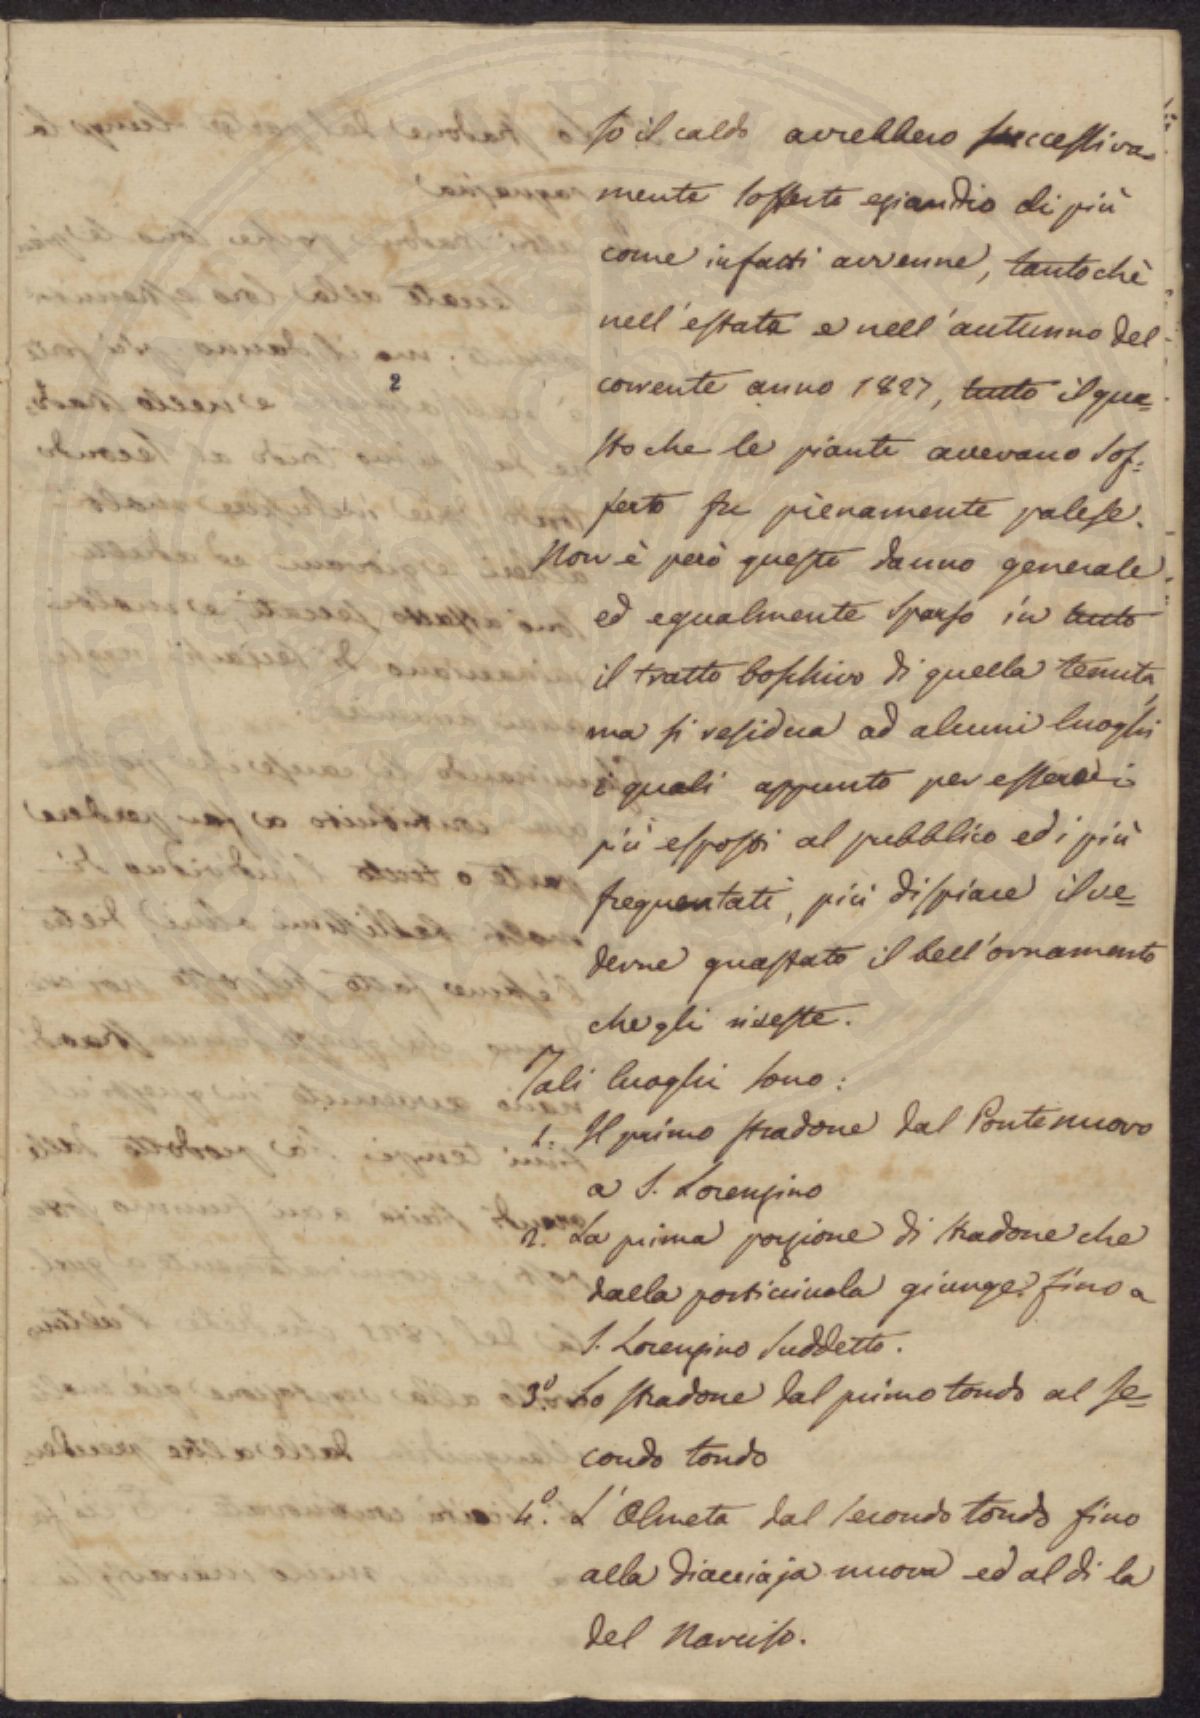 so il caldo avrebbero successiva=
mente sofferto eziandio di più
come infatti avvenne, tantochè
nell'estate e nell'autunno del
corrente anno 1827, tutto il gua=
sto che le piante avevano sof=
ferto fu pienamente palese.
Non è però questo danno generale
ed egualmente sparso in tutto
il tratto boschivo di quella tenuta,
ma si residua ad alcuni luoghi
i quali appunto per essere i
più esposti al pubblico ed i più
frequentati, più dispiace il ve=
derne guastato il bell'ornamento
che gli riveste.
Tali luoghi sono:
1. Il primo stradone dal Ponte nuovo
a S. Lorenzino
2. La prima porzione di stradone che
dalla porticciuola giunge fino a
S. Lorenzino suddetto.
3.º Lo stradone dal primo tondo al se=
condo tondo
4.º L'Olmeta dal secondo tondo fino
alla diacciaja nuova ed al di la
del Narciso.
2